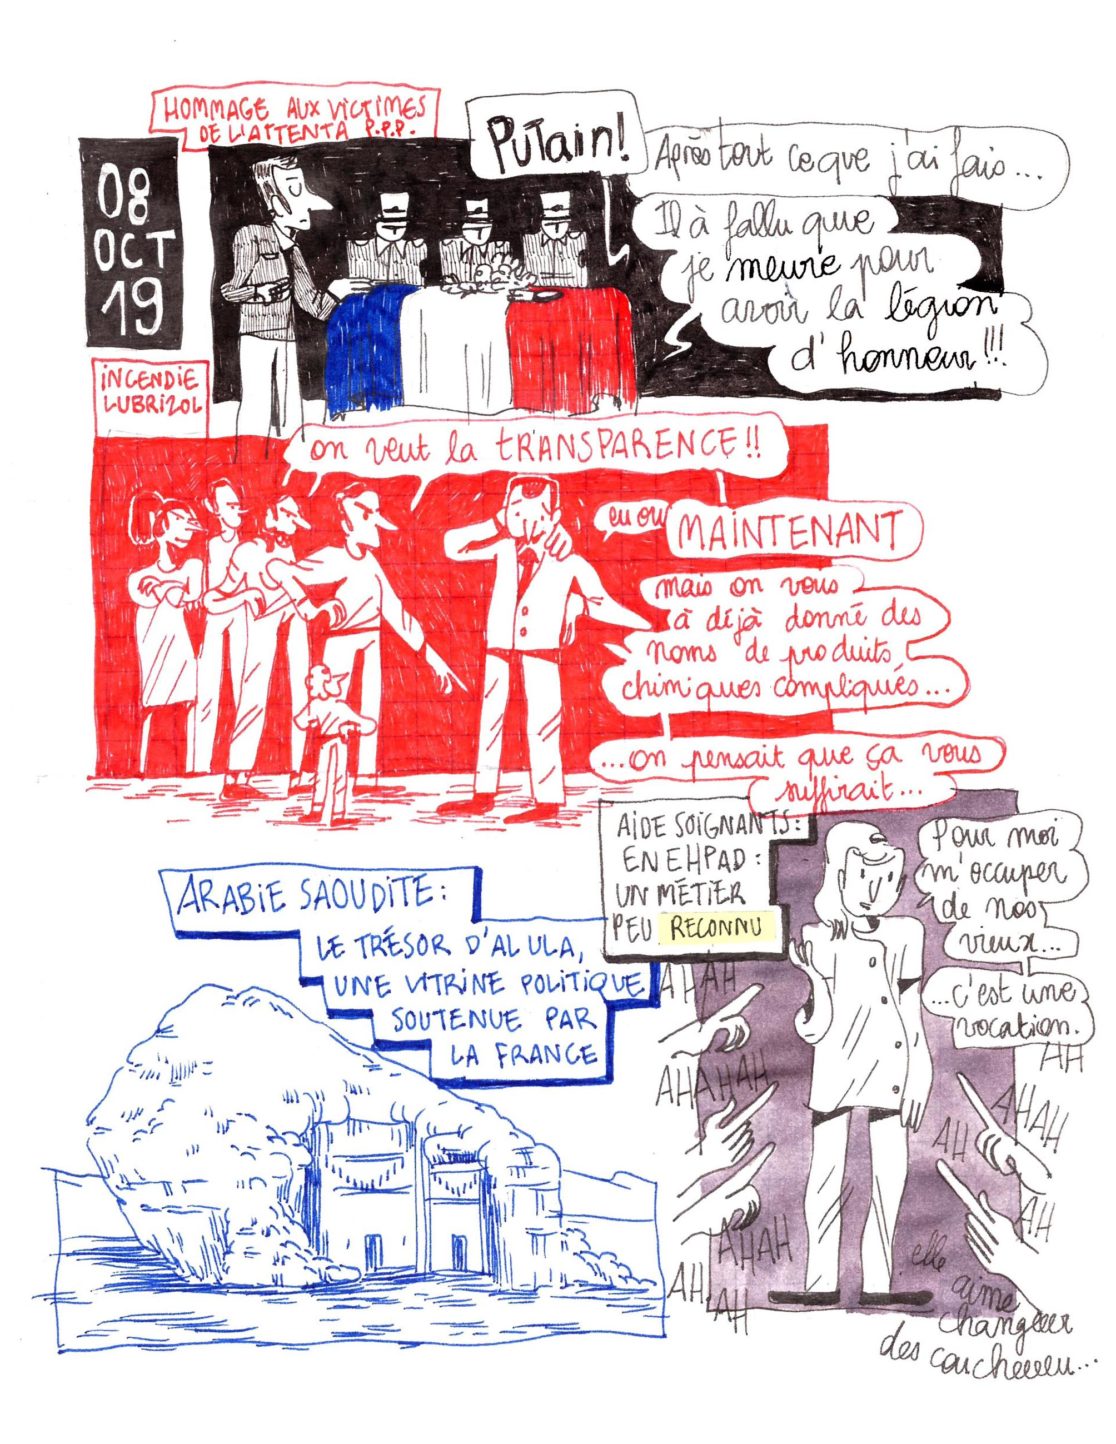 HOMMAGE AUX VICTIMES
DE L'ATTENTA P.P.P.
08
OCT
19
Putain!
Après tout ce que j'ai fais...
Il à fallu que
je meure pour
avoir la légion
d'honneur!!!
INCENDIE
LUBRIZOL
on veut la TRANSPARENCE!!
eu ou
MAINTENANT
mais on vous
à déjà donné des
noms de produits
chimiques compliqués...
...on pensait que ça vous
suffirait...
AIDE SOIGNANTS:
EN EHPAD:
UN MÉTIER
PEU RECONNU
Pour moi
m'occuper
de nos
vieux...
...c'est une
vocation.
ARABIE SAOUDITE:
LE TRÉSOR D'AL ULA,
UNE VITRINE POLITIQUE
SOUTENUE PAR
LA FRANCE
AH AH
AHAHAH
AHAH
AH
AH
AH
AHAH
AH
AH
AH
elle
aime
changeeer
des coucheeeeu...